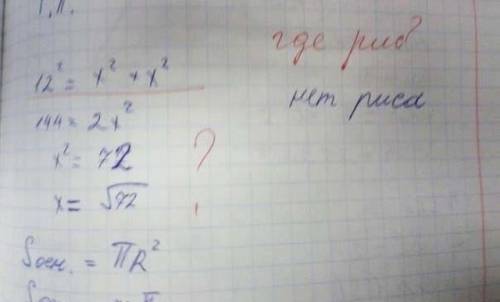 т.п.
12² = x² + x²
144 = 2x²
x² = 72
x = √72
?
Sосн. = πR²
где рис
нет риса